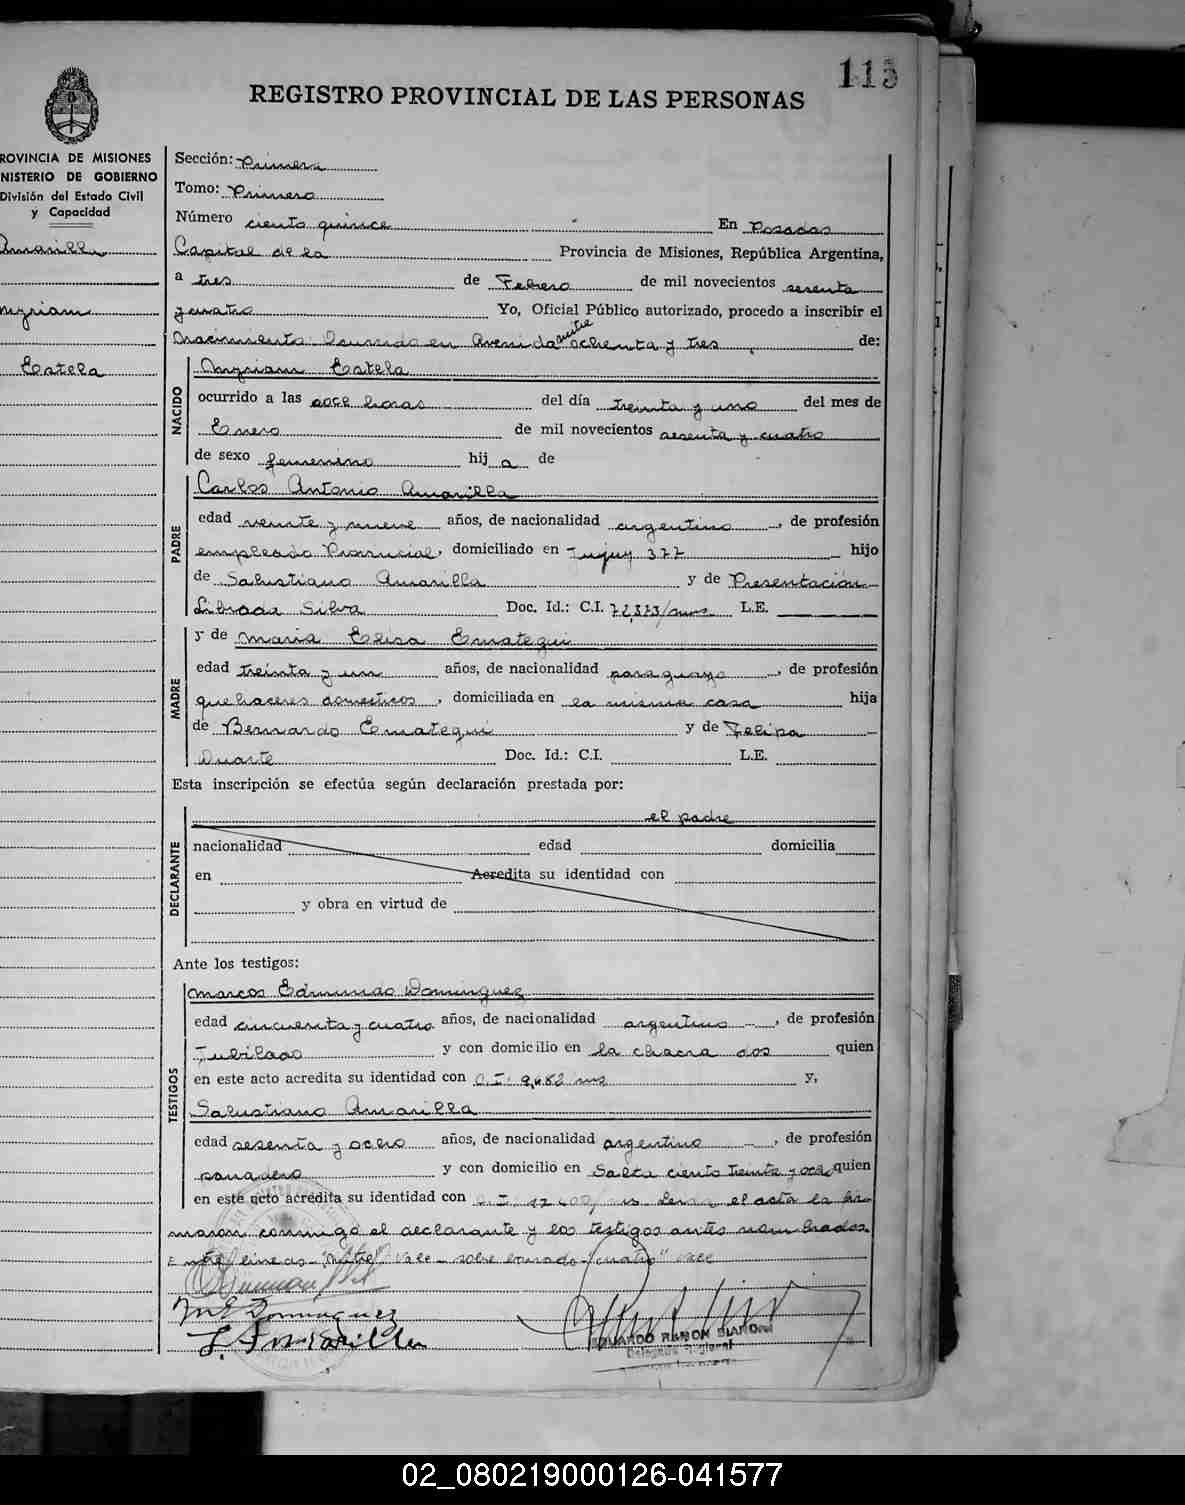 115
REGISTRO PROVINCIAL DE LAS PERSONAS
ROVINCIA DE MISIONES
NISTERIO DE GOBIERNO
División del Estado Civil
y Capacidad
Amarilla
Myriam
Estela
Sección: Primera
Tomo: Primero
Número ciento quince En Posadas
Capital de la Provincia de Misiones, República Argentina,
a tres de Febrero de mil novecientos sesenta
y cuatro Yo, Oficial Público autorizado, procedo a inscribir el
Nacimiento Ocurrido en Avenida mitre ochenta y tres de:
NACIDO
Myriam Estela
ocurrido a las doce horas del día treinta y uno del mes de
Enero de mil novecientos sesenta y cuatro
de sexo femenino hij a de
PADRE
Carlos Antonio Amarilla
edad veinte y nueve años, de nacionalidad argentino, de profesión
empleado Provincial, domiciliado en Jujuy 377 hijo
de Salustiano Amarilla y de Presentación
Librada Silva Doc. Id.: C.I. L.E.
MADRE
y de Maria Elisa Emategui
edad treinta y un años, de nacionalidad paraguaya, de profesión
quehaceres domesticos, domiciliada en la misma casa hija
de Bernardo Emategui y de Felipa
Duarte Doc. Id.: C.I. L.E.
Esta inscripción se efectúa según declaración prestada por:
DECLARANTE
el padre
nacionalidad edad domicilia
en Acredita su identidad con
y obra en virtud de
Ante los testigos:
TESTIGOS
Marcos Edmundo Dominguez
edad cincuenta y cuatro años, de nacionalidad argentino, de profesión
Jubilado y con domicilio en la chacra dos quien
en este acto acredita su identidad con C.I. y,
Salustiano Amarilla
edad sesenta y ocho años, de nacionalidad argentino, de profesión
panadero y con domicilio en Salta ciento treinta y ocho quien
en este acto acredita su identidad con C.I. el acta la fir
maron conmigo el declarante y los testigos antes nombrados.
Entre lineas - "Mitre" Vale - sobre borrado - "cuatro" vale
M E Dominguez
S. Amarilla
EDUARDO RAMON
Delegado Regional
02_080219000126-041577